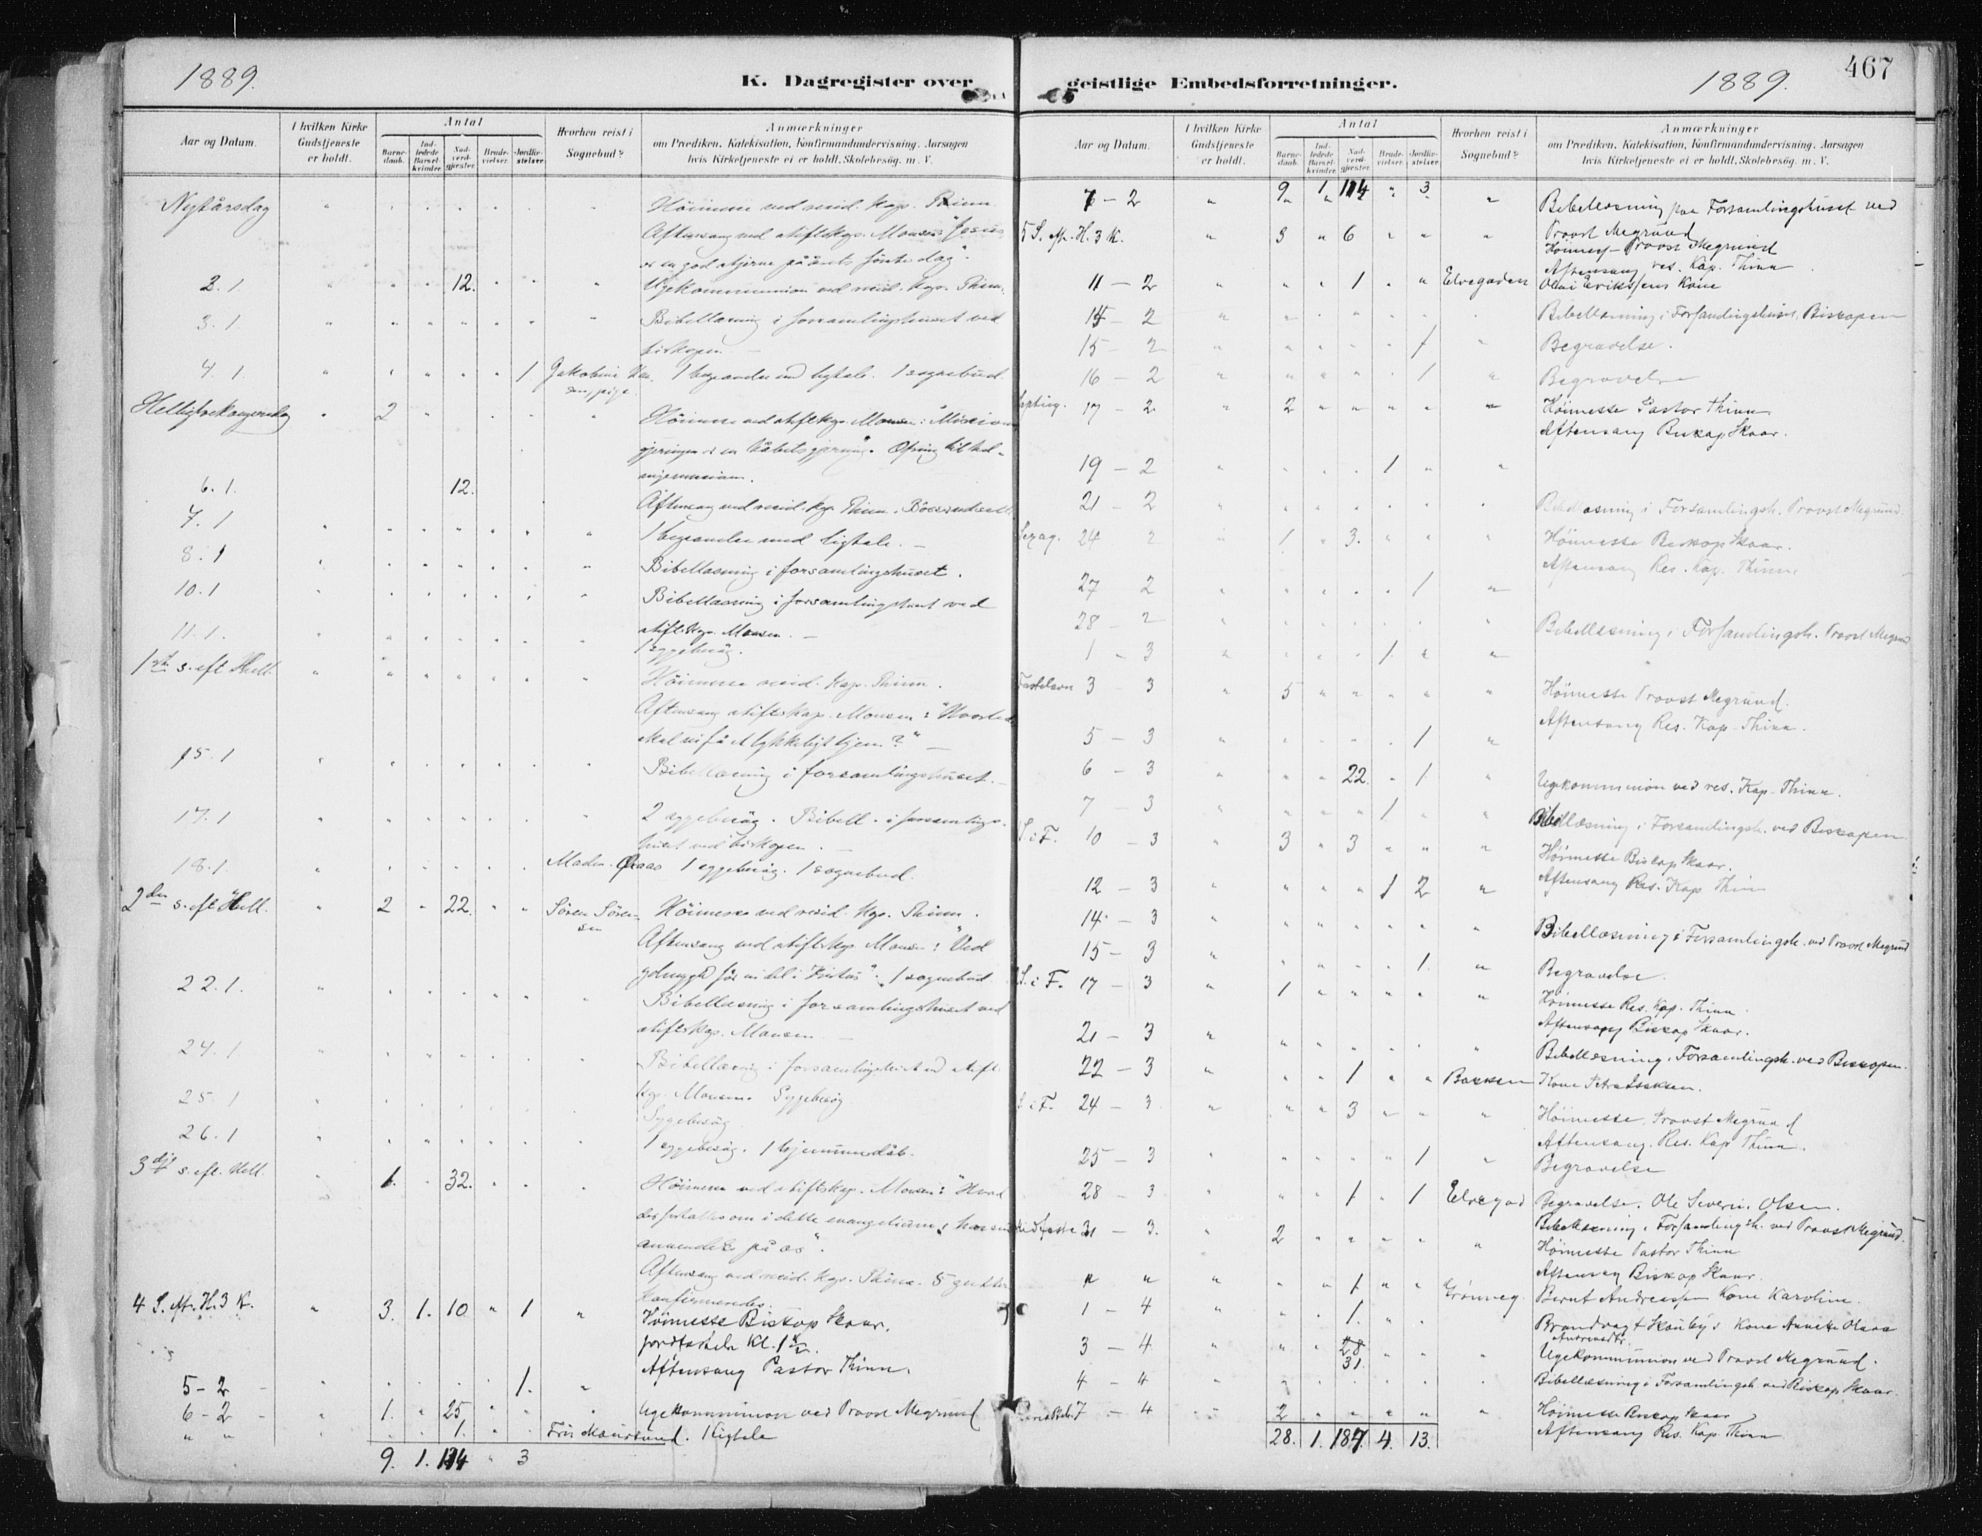 1889.
K. Dagregister over
Aar og Datum.
I hvilken Kirke Gudstjeneste er holdt.
Antal
Barne-daab.
Ind-ledede Barsel-kvinder.
Nad-verd-gjester.
Brude-vielser.
Jordfæ-stelser.
Hvorhen reist i Sognebud?
Anmærkninger
om Prædiken, Katekisation, Konfirmandundervisning, Aarsagen
hvis Kirketjeneste ei er holdt, Skolebesög, m. V.
Nytårsdag " Höimesse ved resid. kap. Thinn
Aftensang ved stiftskap. Monsen "Jesus
er en god stjerne på årets förste dag".
2. 1 " 12. Ugekommunion ved resid. kap. Thinn.
3. 1 " Bibellæsning i forsamlingshuset ved
biskopen.
4. 1 " 1 Jakobine 1 begravelse med ligtale. 1 sognebud.
Helligtrekongersdag " 2 Höimesse ved stiftskap. Monsen: "Missions
gjerningen er en håbets gjerning".
6. 1. 12.
Aftensang ved resid. kap. Thinn.
7. 1 1 begravelse med ligtale.
8. 1 Bibellæsning i forsamlingshuset.
10. 1 Bibellæsning i forsamlingshuset ved
stiftskap. Monsen.
11. 1. 1 sygebesög.
1ste s. eft. Hell. Höimesse resid. kap. Thinn.
Aftensang stiftskap. Monsen: "Hvorledes
skal vi få et lykkeligt hjem?"
15. 1 Bibellæsning i forsamlingshuset.
17. 1 2 sygebesög. Bibell. i forsamlings-
huset ved biskopen.
18. 1. 1 sygebesög. 1 sognebud.
2den s. eft. Hell. " 2 " 22. " " Sören Sören-sen Höimesse ved resid. kap. Thinn.
Aftensang ved stiftskap. Monsen: "Ved
1 sognebud
22. 1. Bibellæsning i forsamlingshuset ved
stiftskap. Monsen
24. 1 Bibellæsning i forsamlingshuset ved stifts
kap. Monsen. Sygebesög
25. 1 Sygebesög
26. 1 1 sygebesög. 1 hjemmedåb.
3dje s. eft. Hell. 1. 32. Höimesse ved stiftskap. Monsen: "Hvad
der fortælles om i dette evangelium,
anvendes på os".
Aftensang ved resid. kap. Thinn. 5 gutter
konfirmeredes.
4 S. Aft. H. 3 K. " 3. 1. 10 " 1 " Höimesse Biskop Skaar.
Aftensang Pastor Thinn.
5 - 2 1.
6 - 2 1. 25 Ugekommunion ved Provst Megrund
" " 1. 1 Ligtale
9. 1. 114 " 3
467
geistlige Embedsforretninger.
1889.
Aar og Datum.
I hvilken Kirke Gudstjeneste er holdt.
Antal
Barne-daab.
Ind-ledede Barsel-kvinder.
Nad-verd-gjester.
Brude-vielser.
Jordfæ-stelser.
Hvorhen reist i Sognebud?
Anmærkninger
om Prædiken, Katekisation, Konfirmandundervisning, Aarsagen
hvis Kirketjeneste ei er holdt, Skolebesög, m. V.
7 - 2 " 9 1 114 " 3 " Bibellæsning paa Forsamlingshuset ved
Provst Megrund
5 S. Aft. H. 3 K. " 3 " 6 " " " Höimesse Provst Megrund
Aftensang res. Kap. Thinn
11 - 2 " " " 1 " " Elvegaden Erikssens Kone
14 - 2 Bibellæsning i Forsamlingshuset, Biskopen
15 - 2 1 Begravelse.
16 - 2 1 Begravelse
17 - 2 " 2 Höimesse Pastor Thinn
Aftensang Biskop Skaar.
19 - 2 1
21 - 2 Bibellæsning i Forsamlingsh. Provst Megrund
Sexag. 24 2 1 3. Höimesse Biskop Skaar.
Aftensang Res. Kap. Thinn
27 2 1
28 - 2 Bibellæsning i Forsamlingsh. Provst Megrund
1 - 3 1
Fastelavn 3 - 3 " 5 Höimesse Provst Megrund.
Aftensang Res. Kap. Thinn.
5 - 3 1
6 - 3 22. 1 Ugekommunion ved res. Kap. Thinn.
7 - 3 1 Bibellæsning i Forsamlingsh. ved Biskopen
S. i F. 10 - 3 3 3 Höimesse Biskop Skaar.
Aftensang Res. Kap Thinn
12 - 3 1 2
14 - 3 Bibellæsning i Forsamlingsh. ved Provst Megrund
15 - 3 1 Begravelse
S. i F. 17 - 3 1 Höimesse Res. Kap. Thinn
Aftensang Biskop Skaar.
21 - 3 Bibellæsning i Forsamlingsh. ved Biskopen.
22 - 3 1 Bakken Kone Petra Isaksen.
S. i F. 24 - 3 3 Höimesse, Provst Megrund
Aftensang. Res. Kap Thinn.
25 - 3 1 Begravelse
28 - 3 1 1 Elvegad Begravelse. Ole Severin Olsen.
Bibellæsning i Forsamlingsh. ved Provst Megrund.
Midfaste 31 - 3. 2 Höimesse Pastor Thinn
Aftensang Biskop Skaar.
" " 1 Grönneg. Bernt Andreassen Kone Karoline
1 - 4 1.
3 - 4 28 31. Ugekommunion ved Provst Megrund.
4 - 4 Bibellæsning i Forsamlingsh. ved Biskop Skaar.
7 - 4 2 Höimesse Biskop Skaar
Aftensang Res. Kap. Thinn
28. 1. 187. 4. 13.